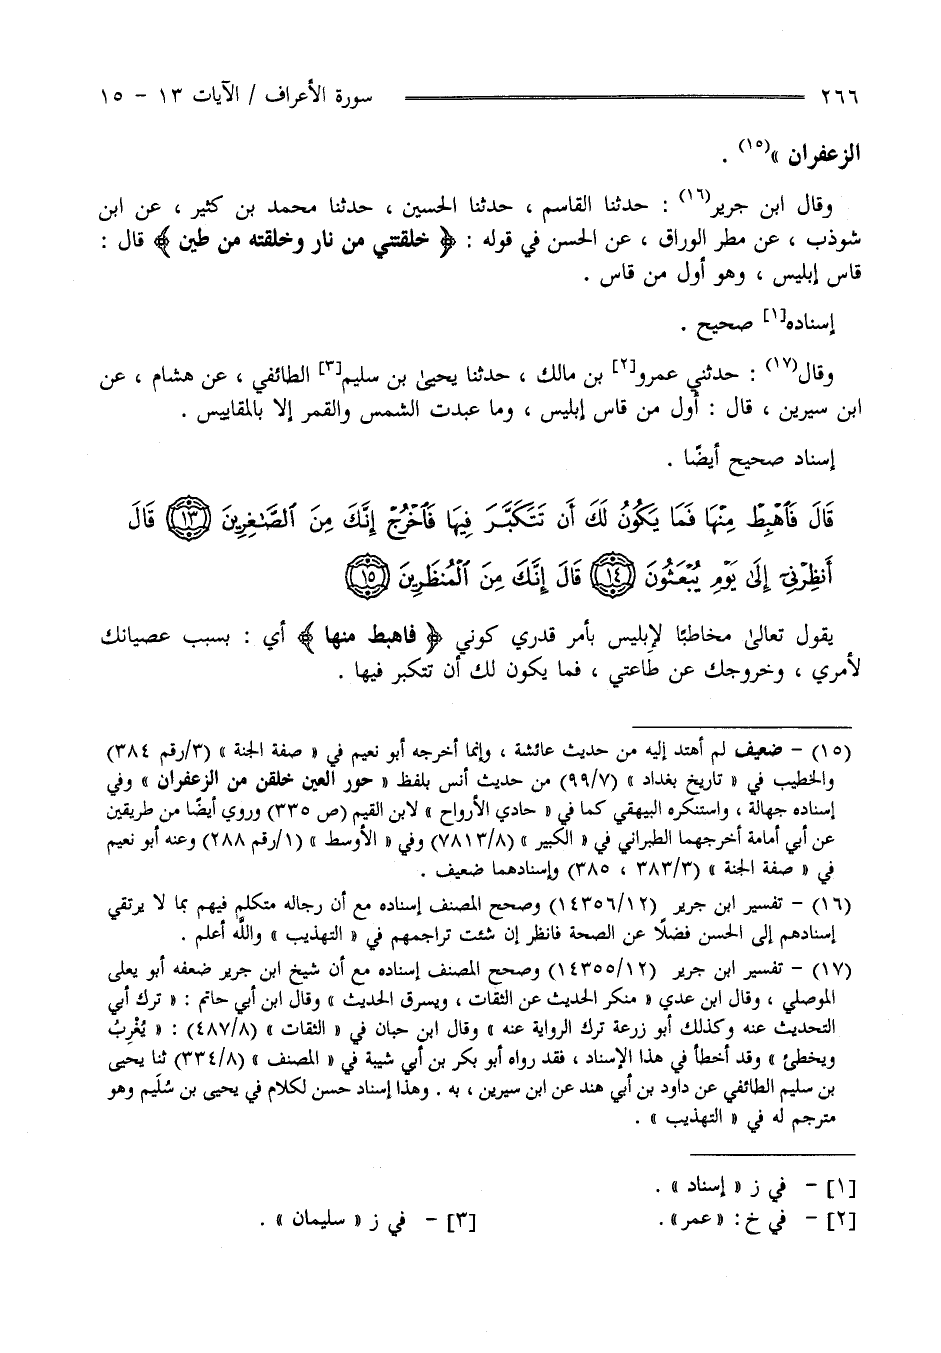 ٢٦٦ سورة الأعراف / الآيات ١٣ - ١٥
الزعفران »(١٥) .
وقال ابن جرير(١٦) : حدثنا القاسم ، حدثنا الحسين ، حدثنا محمد بن كثير ، عن ابن
شوذب ، عن مطر الوراق ، عن الحسن في قوله : ﴿ خلقتني من نار وخلقته من طين ﴾ قال :
قاس إبليس ، وهو أول من قاس .
إسناده[١] صحيح .
وقال(١٧) : حدثني عمرو[٢] بن مالك ، حدثنا يحيىٰ بن سليم[٣] الطائفي ، عن هشام ، عن
ابن سيرين ، قال : أول من قاس إبليس ، وما عبدت الشمس والقمر إلا بالمقاييس .
إسناد صحيح أيضًا .
قَالَ فَٱهْبِطْ مِنْهَا فَمَا يَكُونُ لَكَ أَن تَتَكَبَّرَ فِيهَا فَٱخْرُجْ إِنَّكَ مِنَ ٱلصَّٰغِرِينَ ١٣ قَالَ
أَنظِرْنِىٓ إِلَىٰ يَوْمِ يُبْعَثُونَ ١٤ قَالَ إِنَّكَ مِنَ ٱلْمُنظَرِينَ ١٥
يقول تعالىٰ مخاطبًا لإبليس بأمر قدري كوني ﴿ فاهبط منها ﴾ أي : بسبب عصيانك
لأمري ، وخروجك عن طاعتي ، فما يكون لك أن تتكبر فيها .
(١٥) - ضعيف لم أهتد إليه من حديث عائشة ، وإنما أخرجه أبو نعيم في « صفة الجنة » (٣/رقم ٣٨٤)
والخطيب في « تاريخ بغداد » (٩٩/٧) من حديث أنس بلفظ « حور العين خلقن من الزعفران » وفي
إسناده جهالة ، واستنكره البيهقي كما في « حادي الأرواح » لابن القيم (ص ٣٣٥) وروي أيضًا من طريقين
عن أبي أمامة أخرجهما الطبراني في « الكبير » (٧٨١٣/٨) وفي « الأوسط » (١/رقم ٢٨٨) وعنه أبو نعيم
في « صفة الجنة » (٣٨٣/٣ ، ٣٨٥) وإسنادهما ضعيف .
(١٦) - تفسير ابن جرير (١٤٣٥٦/١٢) وصحح المصنف إسناده مع أن رجاله متكلم فيهم بما لا يرتقي
إسنادهم إلى الحسن فضلًا عن الصحة فانظر إن شئت تراجمهم في « التهذيب » والله أعلم .
(١٧) - تفسير ابن جرير (١٤٣٥٥/١٢) وصحح المصنف إسناده مع أن شيخ ابن جرير ضعفه أبو يعلى
الموصلي ، وقال ابن عدي « منكر الحديث عن الثقات ، ويسرق الحديث » وقال ابن أبي حاتم : « ترك أبي
التحديث عنه وكذلك أبو زرعة ترك الرواية عنه » وقال ابن حبان في « الثقات » (٤٨٧/٨) : « يُغْرِبُ
ويخطئ » وقد أخطأ في هذا الإسناد ، فقد رواه أبو بكر بن أبي شيبة في « المصنف » (٣٣٤/٨) ثنا يحيى
بن سليم الطائفي عن داود بن أبي هند عن ابن سيرين ، به . وهذا إسناد حسن لكلام في يحيى بن سُلَيم وهو
مترجم له في « التهذيب » .
[١] - في ز « إسناد » .
[٢] - في خ : «عمر». [٣] - في ز « سليمان » .